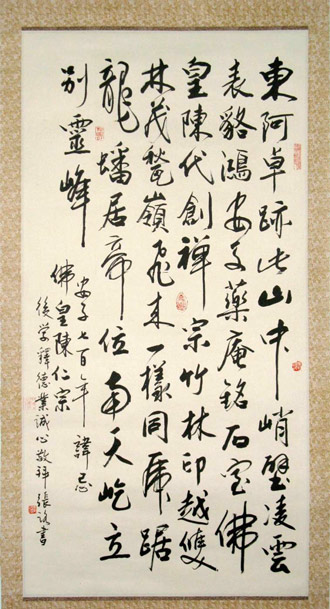 東阿卓跡此山中峭壁凌雲
表貉鴻安子藥庵銘石室佛
皇陳代創禪宗竹林印越雙
林茂鷲嶺飛来一樣同虎踞
龍蟠居帝位南天屹立
別靈峰
安子七百年諱忌
佛皇陳仁宗
後学釋德業誠心敬拜張書